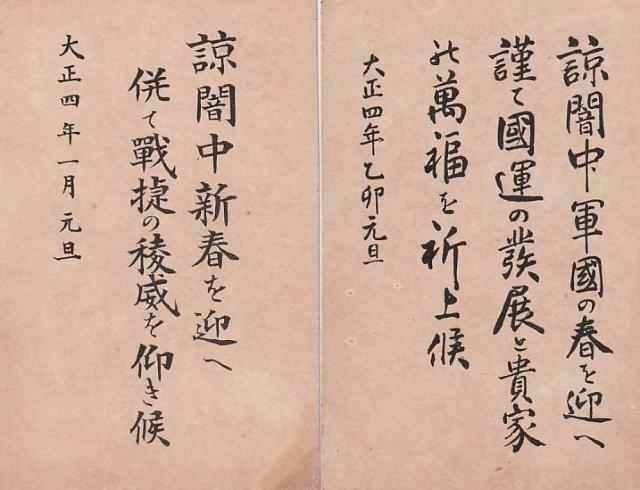 諒闇中軍國の春を迎へ
謹て國運の發展と貴家
の萬福を祈上候
大正四年乙卯元旦
諒闇中新春を迎へ
併て戰捷の稜威を仰き候
大正四年一月元旦